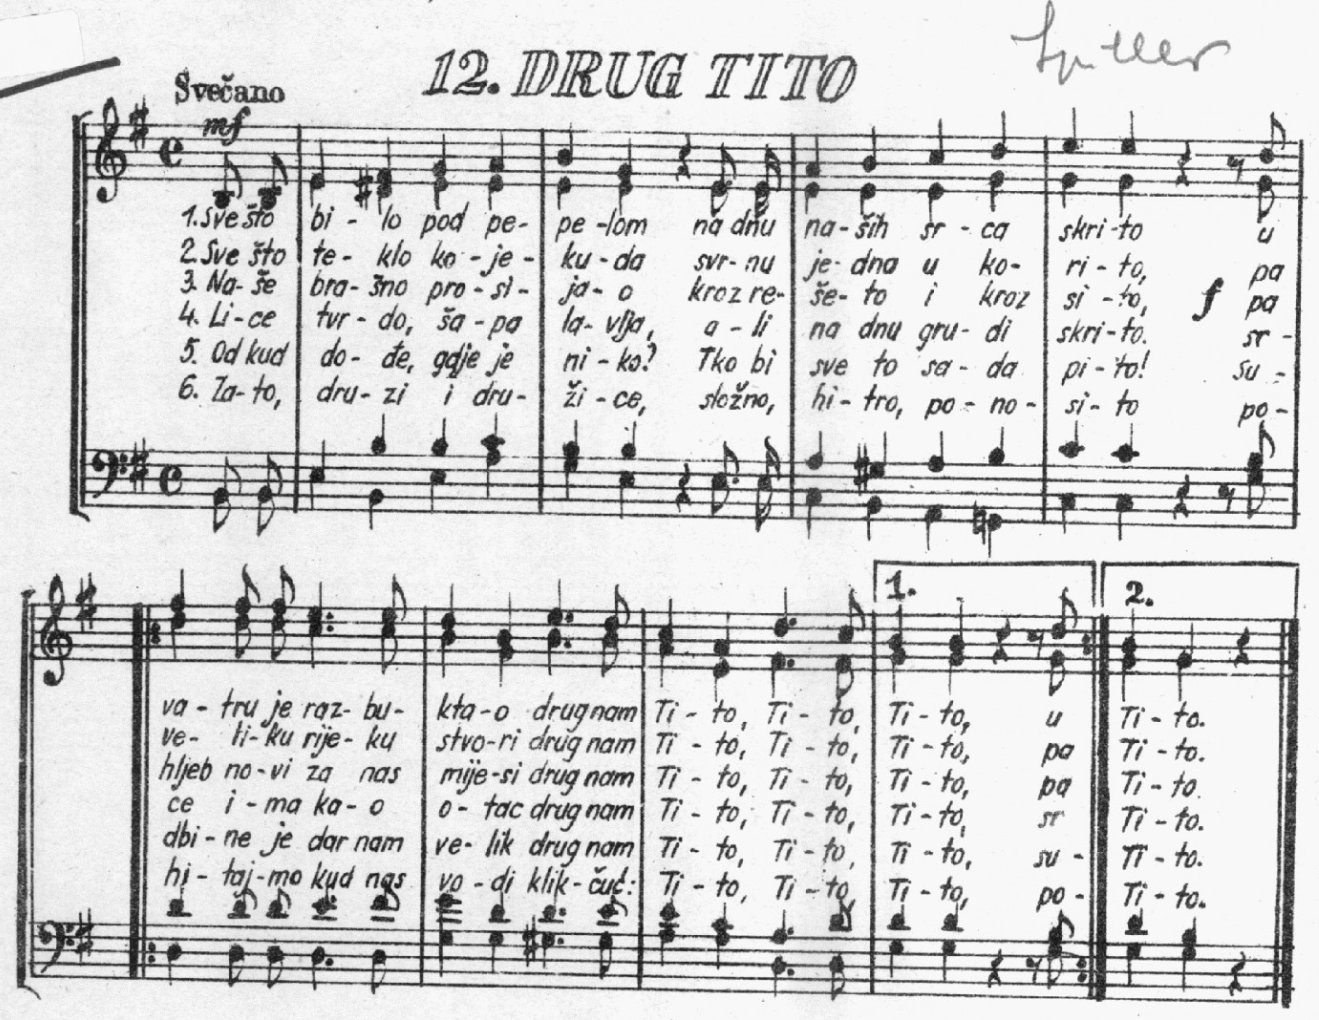 12. DRUG TITO
Svečano
mf
1. Sve što bi - lo pod pe - pe - lom na dnu na - ših sr - ca skri - to u
2. Sve što te - klo ko - je - ku - da svr - nu je - dna u ko - ri - to, pa
3. Na - še bra - šno pro - si - ja - o kroz re - še - to i kroz si - to, f pa
4. Li - ce tvr - do, ša - pa la - vlja, a - li na dnu gru - di skri - to. sr -
5. Od kud do - đe, gdje je ni - ko? Tko bi sve to sa - da pi - to! su -
6. Za - to, dru - zi i dru - ži - ce, složno, hi - tro, po - no - si - to po -
1. 2.
va - tru je raz - bu - kta - o drug nam Ti - to, Ti - to, Ti - to, u Ti - to.
ve - li - ku rije - ku stvo - ri drug nam Ti - to, Ti - to, Ti - to, pa Ti - to.
hljeb no - vi za nas mije - si drug nam Ti - to, Ti - to, Ti - to, pa Ti - to.
ce i - ma ka - o o - tac drug nam Ti - to, Ti - to, Ti - to, sr Ti - to.
dbi - ne je dar nam ve - lik drug nam Ti - to, Ti - to, Ti - to, su - Ti - to.
hi - taj - mo kud nas vo - di klik - čuć: Ti - to, Ti - to, Ti - to, po - Ti - to.